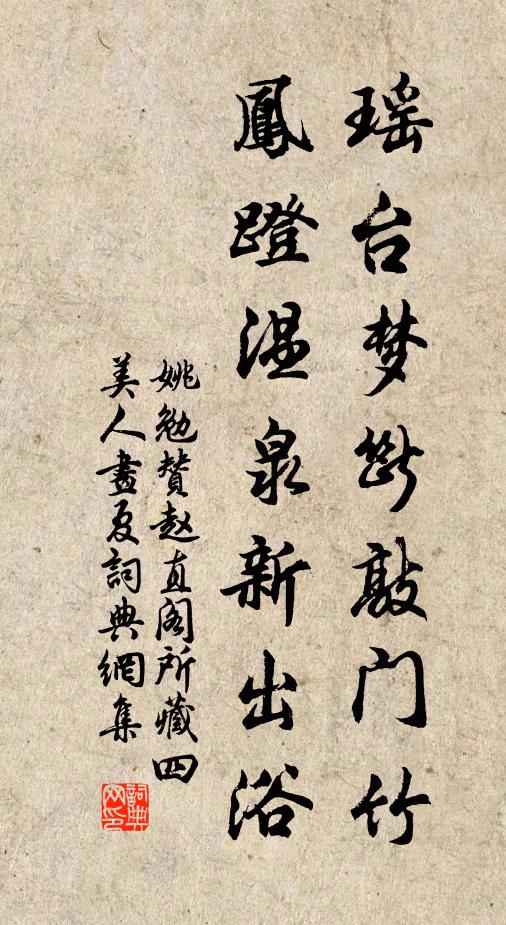 瑶台梦断敲门竹
鳳蹬温泉新出浴
姚勉赞赵直阁所藏四
美人畫夏詞典網集
詞典网印